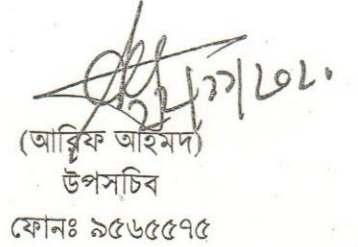 (আরিফ আহমদ)
উপসচিব
ফোনঃ ৯৫৬৫৫৭৫